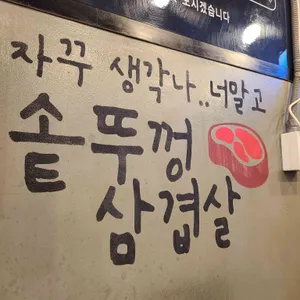 모시겠습니다
자꾸 생각나..너말고
솥뚜껑
삼겹살